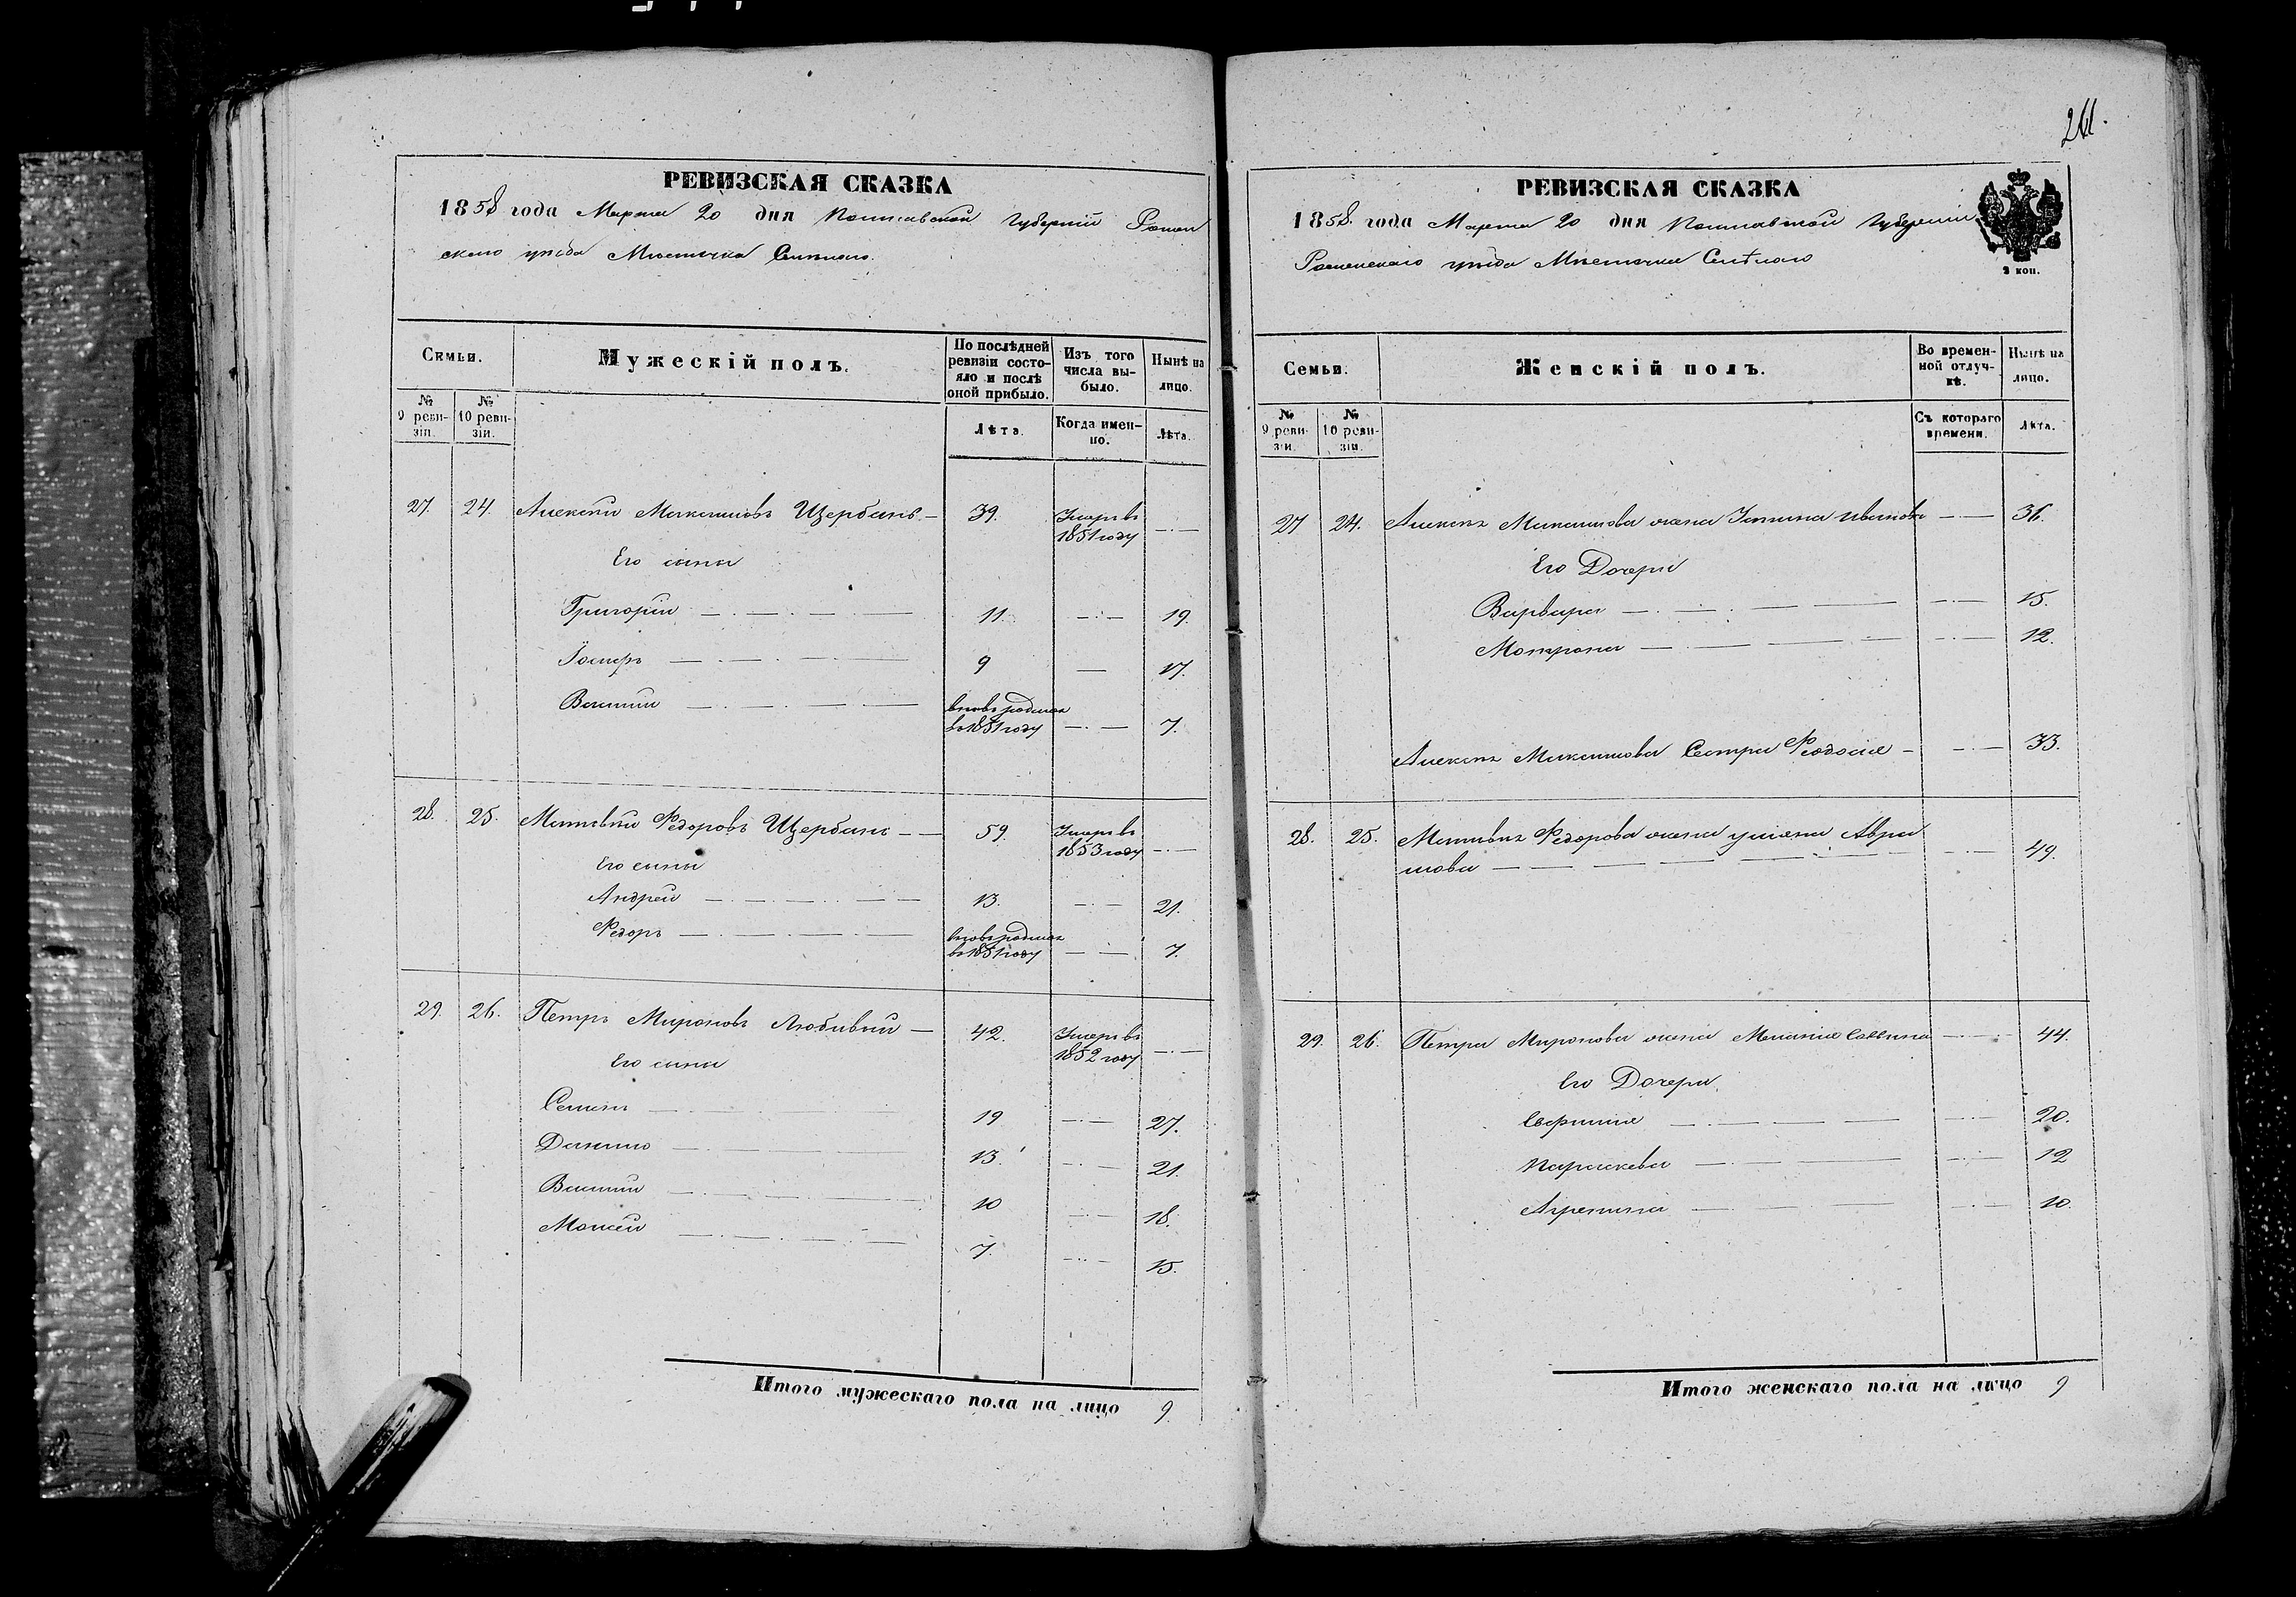 261.
РЕВИЗСКАЯ СКАЗКА
1858 года Марта 20 дня Полтавской Губерніи Ромен
скаго уѣзда Мѣстечка Смѣлаго.
Семьи.
Мужескій полъ.
По послѣдней ревизіи состояло и послѣ оной прибыло.
Изъ того числа выбыло.
Нынѣ на лицо.
№ 9 ревизіи.
№ 10 ревизіи.
Лѣта.
Когда именно.
Лѣта.
27. 24. Алексѣй Максимовъ Щербань — 39. Умеръ въ 1851 году —·—
Его сыны
Григорій — 11. —·— 19.
Іосифъ — 9 — 17.
Василій — вновь родился въ 1851 году —·— 7.
28. 25. Матвѣй Федоровъ Щербань — — 59. Умеръ въ 1853 году —·—
Его сыны
Андрей — 13. —·— 21.
Федоръ — вновь родился въ 1851 году —·— 7.
29. 26. Петръ Мироновъ Любивый — 42. Умеръ въ 1852 году —·—
Его сыны
Семенъ — 19 —·— 27.
Данило — 13. —·— 21.
Василій — 10 —·— 18.
Моисей — 7. —·— 15.
Итого мужескаго пола на лицо 9.
РЕВИЗСКАЯ СКАЗКА
1858. года Марта 20 дня Полтавской Губерніи
Роменскаго уѣзда Мѣстечка Смѣлаго
2 коп.
Семьи.
Женскій полъ.
Во временной отлучкѣ.
Нынѣ на лицо.
№ 9 ревизіи.
№ 10 ревизіи.
Съ котораго времени.
Лѣта.
27 24. Алексѣя Максимова жена Иванова —·— 36.
Его Дочери
Варвара — —·— 15.
Мотрона — —·— 12.
Алексѣя Максимова Сестра Феодосія — —·— 33.
28. 25. Матвѣя Федорова жена Уліяна Авра
мова — —·— 49.
29. 26. Петра Миронова жена Меланія Саввина —·— 44.
Его Дочери
Евфимія — —·— 20.
Параскева — —·— 12
Агрепина — —·— 10.
Итого женскаго пола на лицо 9